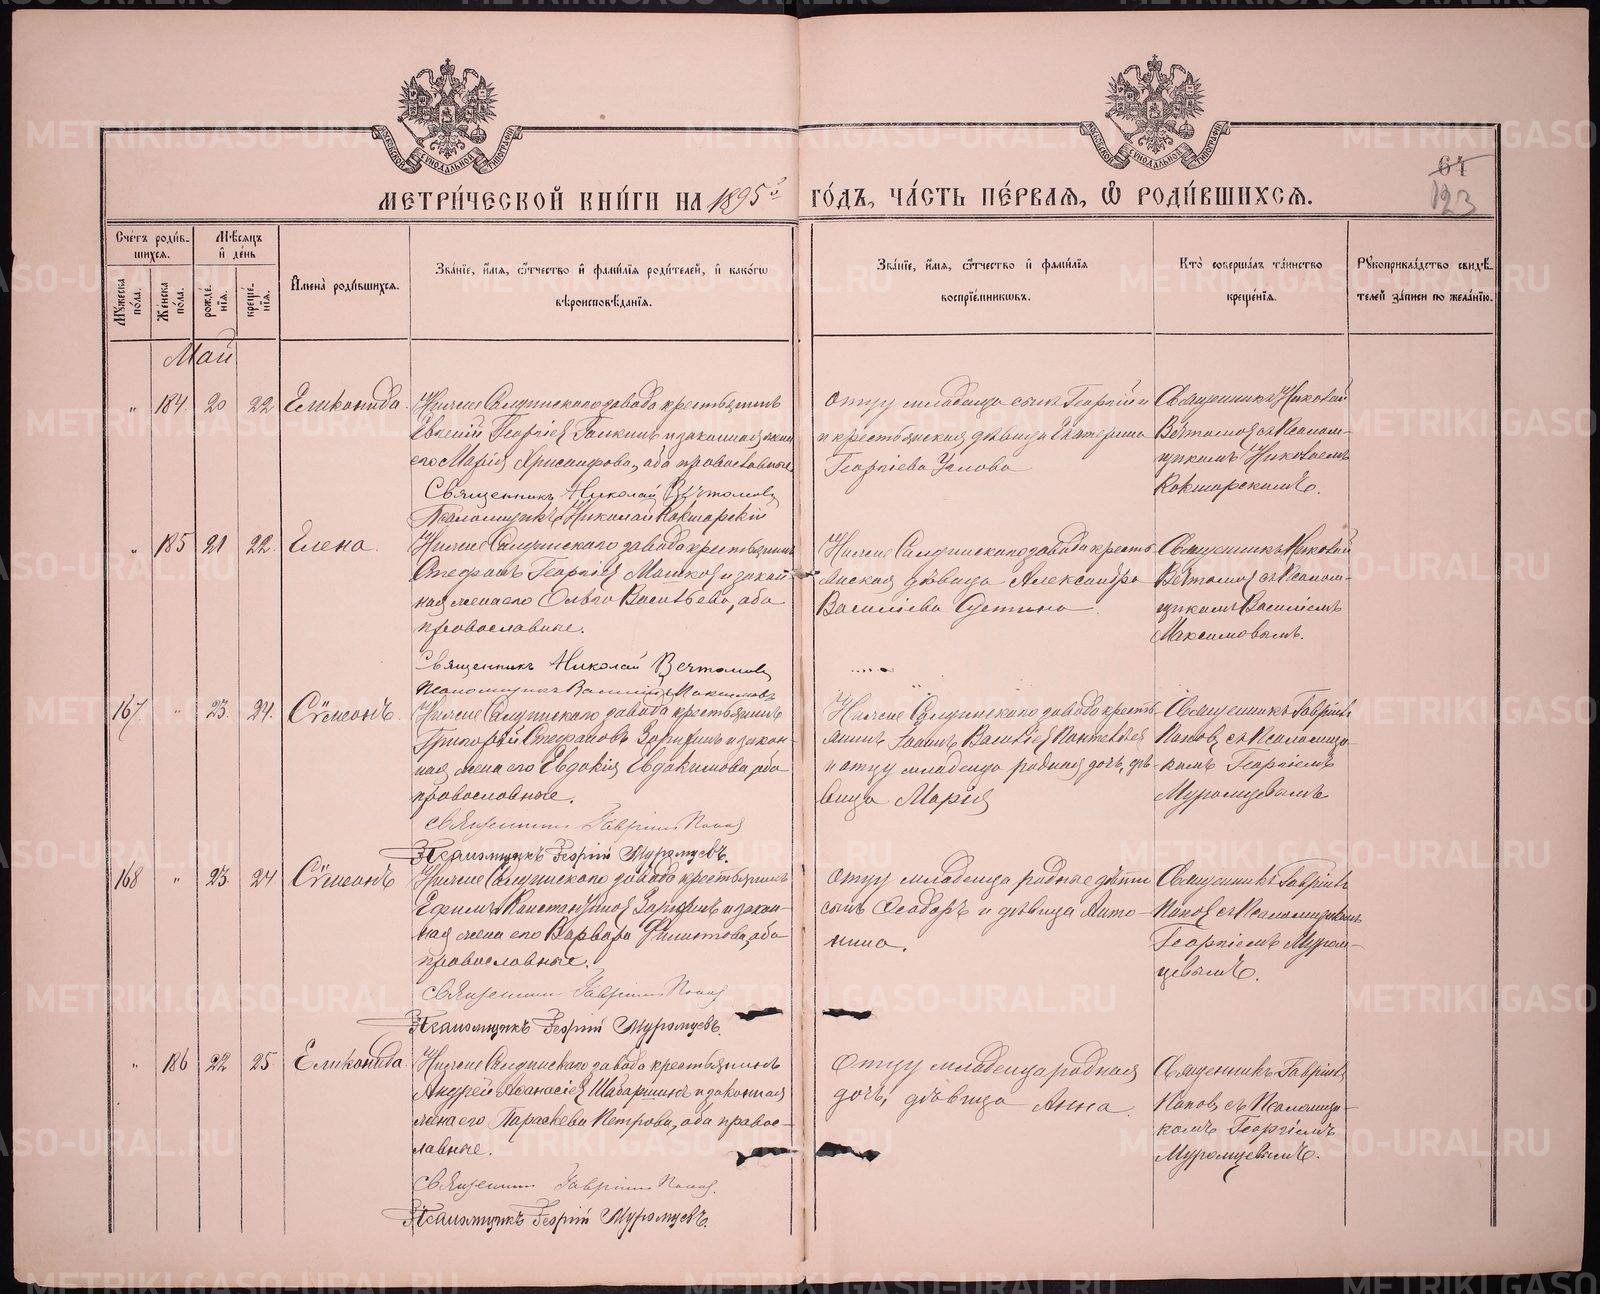 МЕТРИ́ЧЕСКОЙ КНИ́ГИ НА 1895й ГО́ДЪ, ЧА́СТЬ ПЕ́РВАЯ, Ѡ҆ РОДИ́ВШИХСѦ.
64
123
Сче́тъ роди́в-
шихся.
Мѣ́сяцъ
и҆ де́нь
Мꙋ́жеска по́ла.
Же́нска по́ла.
рожде́нїѧ.
креще́нїѧ.
И҆мена̀ роди́вшихсѧ.
Зва́нїе, и҆́мѧ, ѻ҆́тчество и҆ фами́лїѧ роди́телей, и҆ како́гѡ
вѣроисповѣ́данїѧ.
Зва́нїе, и҆́мѧ, ѻ҆́тчество и҆ фами́лїѧ
воспрїе́мниковъ.
Кто̀ соверша́лъ та́инство
креще́нїѧ.
Рꙋкоприкла́дство свидѣ́-
телей за́писи по жела́нїю.
Май
" 184. 20 22 Еликонида.
Нижне Салдинскаго завода крестьянинъ
Евгений Георгіев Галкинъ и законная жена
его Марія Хрисанфова, оба православные
Священникъ Николай Вечтомовъ
Псаломщикъ Николай Кокшарскій
отцу младенца сынъ Георгій
и крестьянская дѣвица Екатерина
Георгіева
Священникъ Николай
Вечтомов съ Псалом-
щикомъ Николаемъ
Кокшарскимъ.
" 185 21 22. Елена.
Нижне Салдинскаго завода крестьянинъ
Стефанъ Георгіев и закон-
ная жена его Ольга Васильева, оба
православные.
Священникъ Николай Вечтомовъ
Псаломщикъ Василій Максимовъ
Нижне Салдинскаго завода кресть-
янская дѣвица Александра
Василіева
Священникъ Николай
Вечтомов съ Псалом-
щикомъ Василіемъ
Максимовымъ.
167. " 23. 24. Сѷмеонъ.
Нижне Салдинскаго завода крестьянинъ
Григорій Стефановъ и закон-
ная жена его Евдокія Евдокимова, оба
православные.
Священникъ Гавріилъ Попов
Псаломщикъ Георгій Муромцевъ.
Нижне Салдинскаго завода кресть-
янинъ Іоаннъ Василіев
и отцу младенца родная дочь, дѣ-
вица Марія
Священникъ Гавріилъ
Попов съ Псаломщи-
комъ Георгіемъ
Муромцевымъ
168 " 23. 24 Сѷмеонъ
Нижне Салдинскаго завода крестьянинъ
Ефимъ Константинов и закон-
ная жена его Варвара Филиппова, оба
православные.
Священникъ Гавріилъ Попов
Псаломщикъ Георгій Муромцевъ.
Отцу младенца родные дѣти
сынъ Ѳеодоръ и дѣвица Анто-
нина.
Священникъ Гавріилъ
Попов съ Псаломщикомъ
Георгіемъ Муром-
цевымъ.
" 186 22 25 Еликонида.
Нижне Салдинскаго завода крестьянинъ
Андрей Аѳанасіев Шабаршинъ и законная
жена его Параскева Петрова, оба право-
славные.
Священникъ Гавріилъ Попов.
Псаломщикъ Георгій Муромцевъ.
Отцу младенца родная
дочь, дѣвица Анна.
Священникъ Гавріилъ
Попов съ Псаломщи-
комъ Георгіемъ
Муромцевымъ.
METRIKI.GASO-URAL.RU